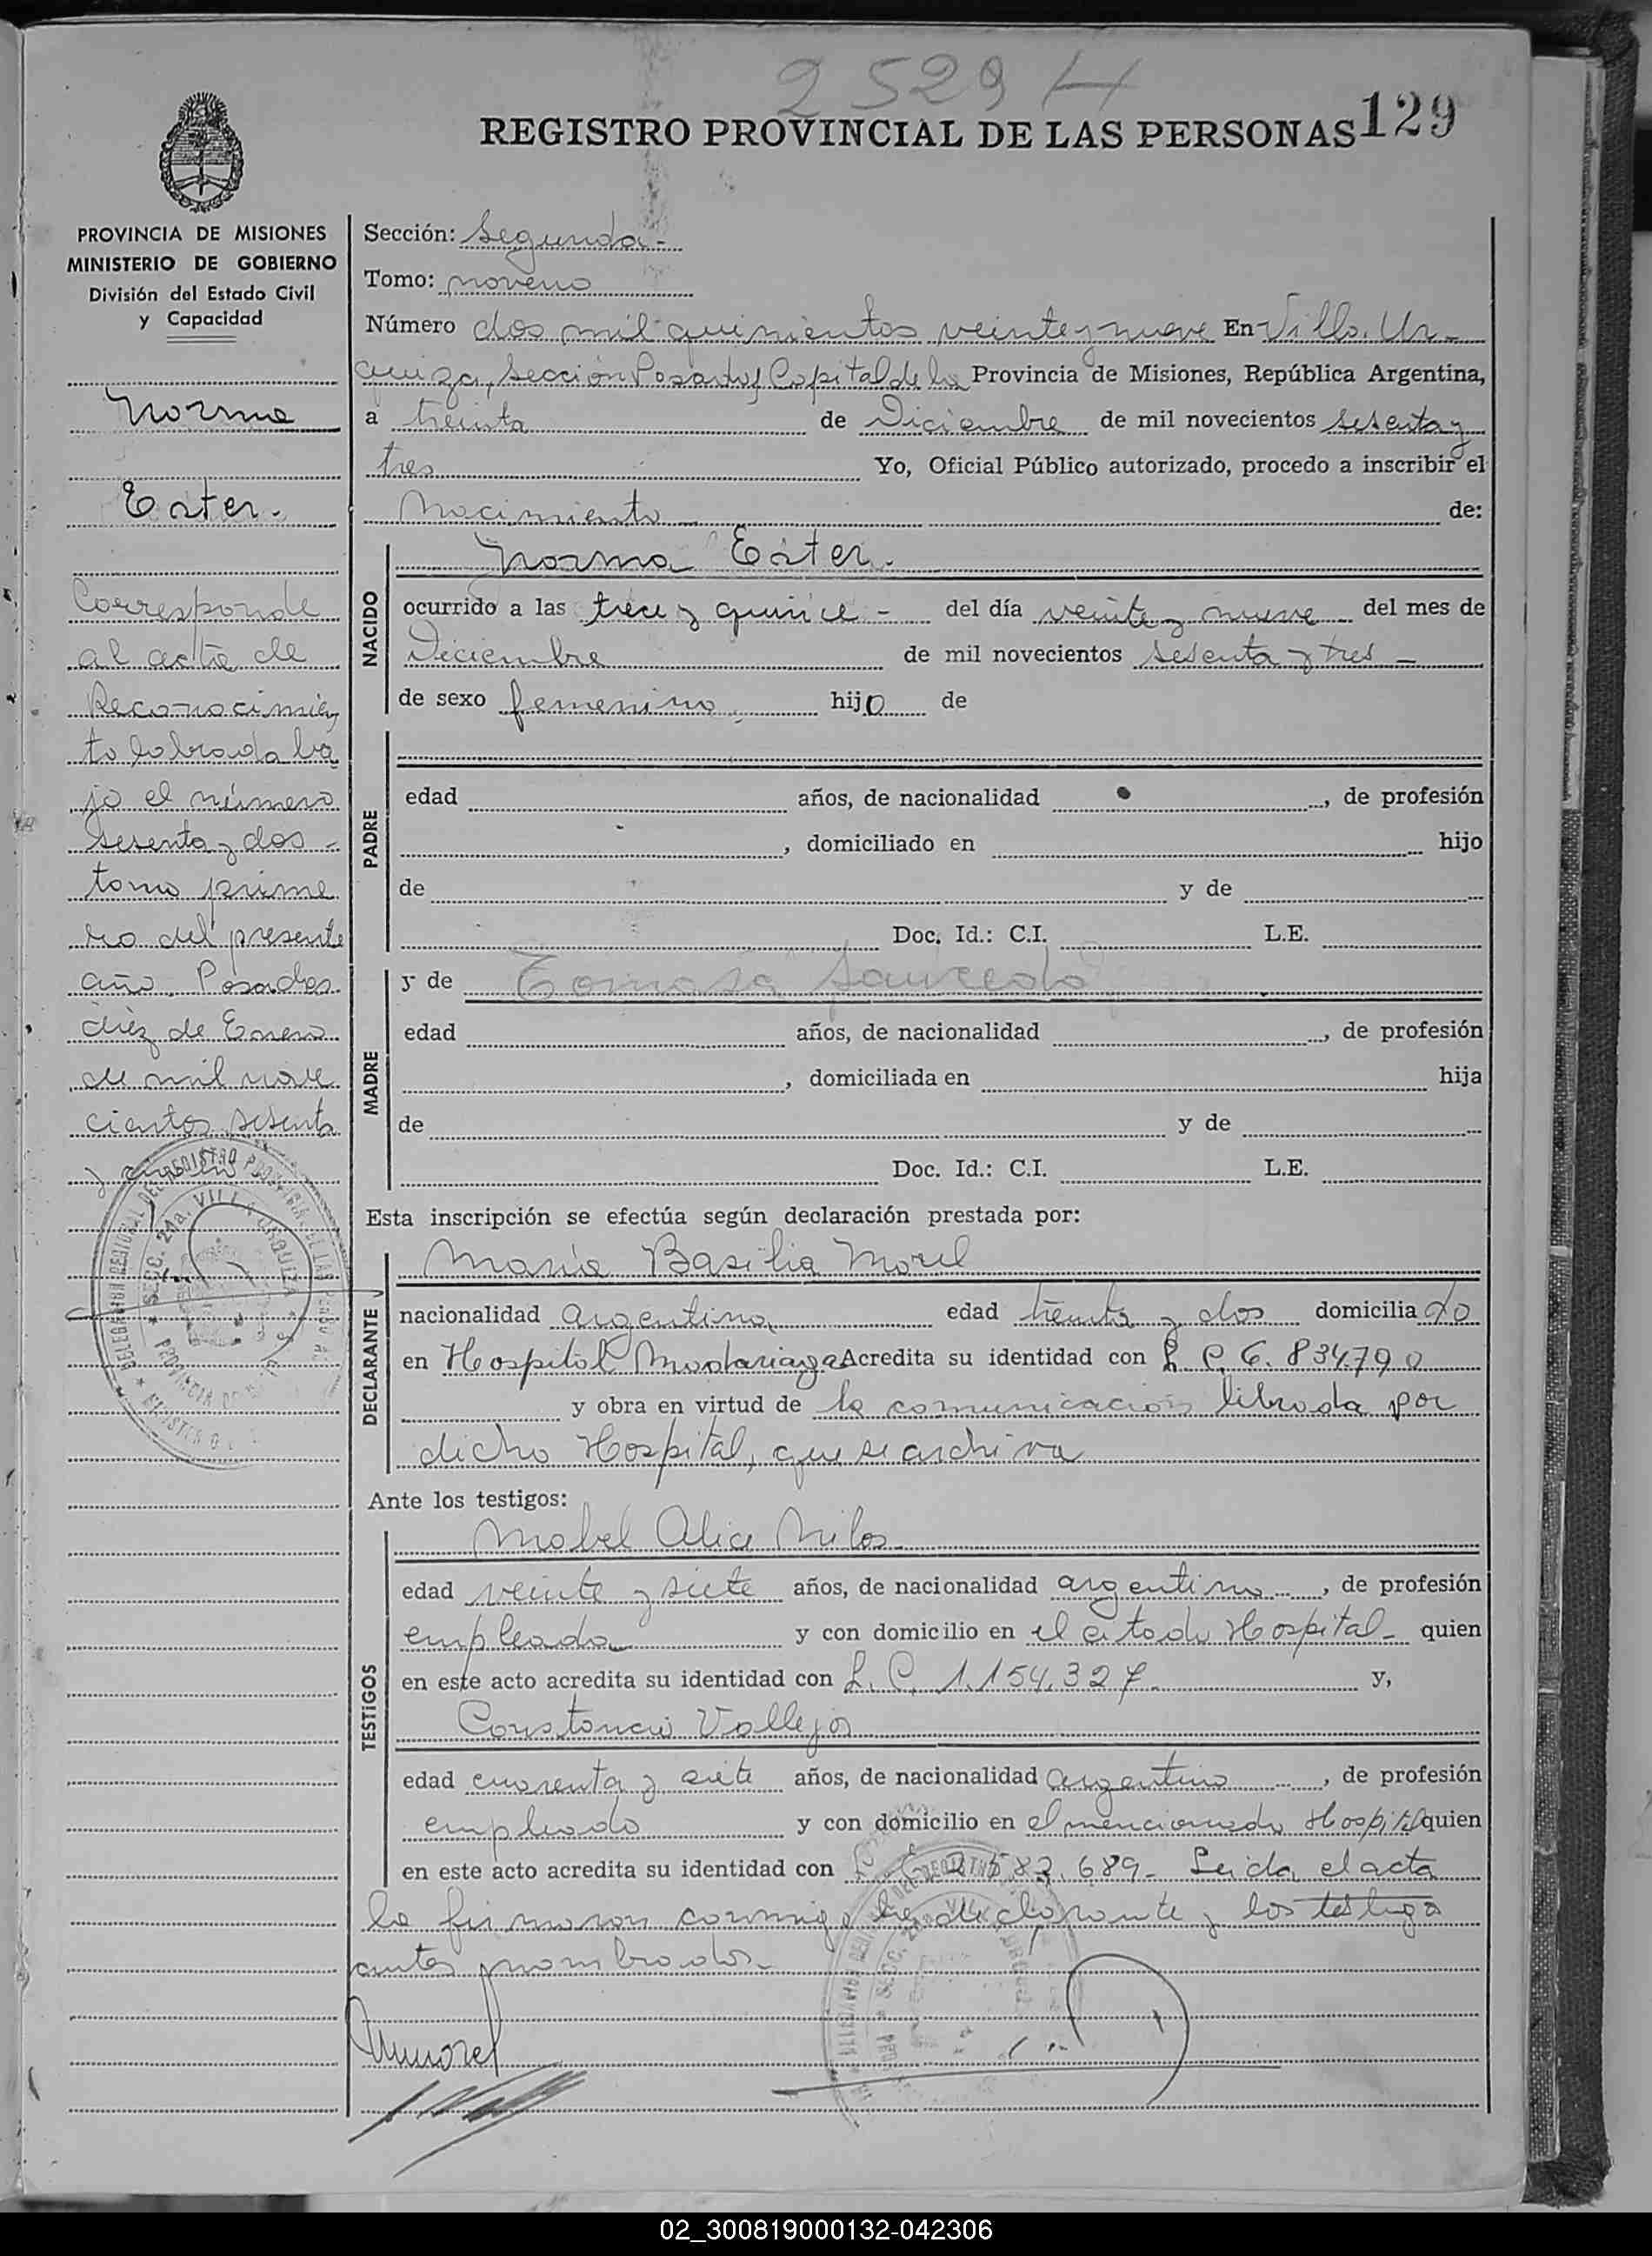 2529 H
REGISTRO PROVINCIAL DE LAS PERSONAS 129
PROVINCIA DE MISIONES
MINISTERIO DE GOBIERNO
División del Estado Civil
y Capacidad
Norma
Ester.
Corresponde
al acta de
Reconocimien
to labrada ba
jo el número
sesenta y dos -
tomo prime
ro del presente
año. Posadas
diez de Enero
de mil nove
cientos sesenta
y
Sección: Segunda -
Tomo: noveno
Número dos mil quinientos veinte y nueve En Villa Ur-
quiza, Sección Posadas Capital de la Provincia de Misiones, República Argentina,
a treinta de Diciembre de mil novecientos sesenta y
tres Yo, Oficial Público autorizado, procedo a inscribir el
Nacimiento de:
NACIDO
Norma Ester.
ocurrido a las trece y quince - del día veinte y nueve del mes de
Diciembre de mil novecientos sesenta y tres -
de sexo femenino, hija de
PADRE
edad años, de nacionalidad , de profesión
, domiciliado en hijo
de y de
Doc. Id.: C.I. L.E.
MADRE
y de Tomasa Saucedo
edad años, de nacionalidad , de profesión
, domiciliada en hija
de y de
Doc. Id.: C.I. L.E.
Esta inscripción se efectúa según declaración prestada por:
DECLARANTE
María Basilia Morel
nacionalidad argentina edad treinta y dos domicilia do
en Hospital Madariaga Acredita su identidad con L. C. 6.834.790
y obra en virtud de la comunicación librada por
dicho Hospital, que se archiva
Ante los testigos:
TESTIGOS
Mabel Alice Milos
edad veinte y siete años, de nacionalidad argentina , de profesión
empleada y con domicilio en el citado Hospital - quien
en este acto acredita su identidad con L. C. 1.154.327 - y,
Constancio Vallejos
edad cuarenta y siete años, de nacionalidad argentino , de profesión
empleado y con domicilio en el mencionado Hospital quien
en este acto acredita su identidad con 689 - Leida el acta
la firmaron conmigo la declarante y los testigos
antes nombrados -
MMorel
02_300819000132-042306